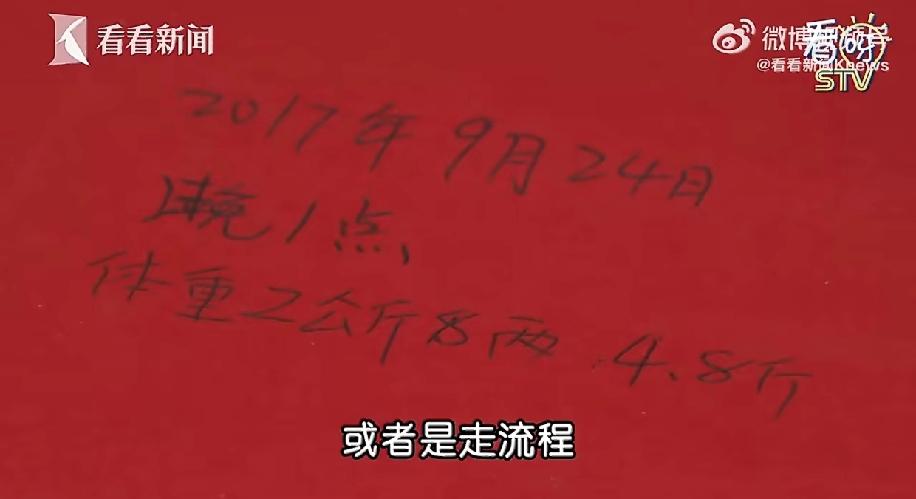 看看新闻
微博视频号
@看看新闻Knews
看呀
STV
2017年9月24日
晚1点
体重2公斤8两.4.8斤
或者是走流程